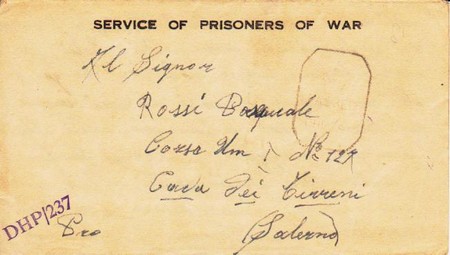 SERVICE OF PRISONERS OF WAR
Al Signor
Rossi Pasquale
Corso Um I N° 127
Cava dei Tirreni
(Salerno)
DHP/237